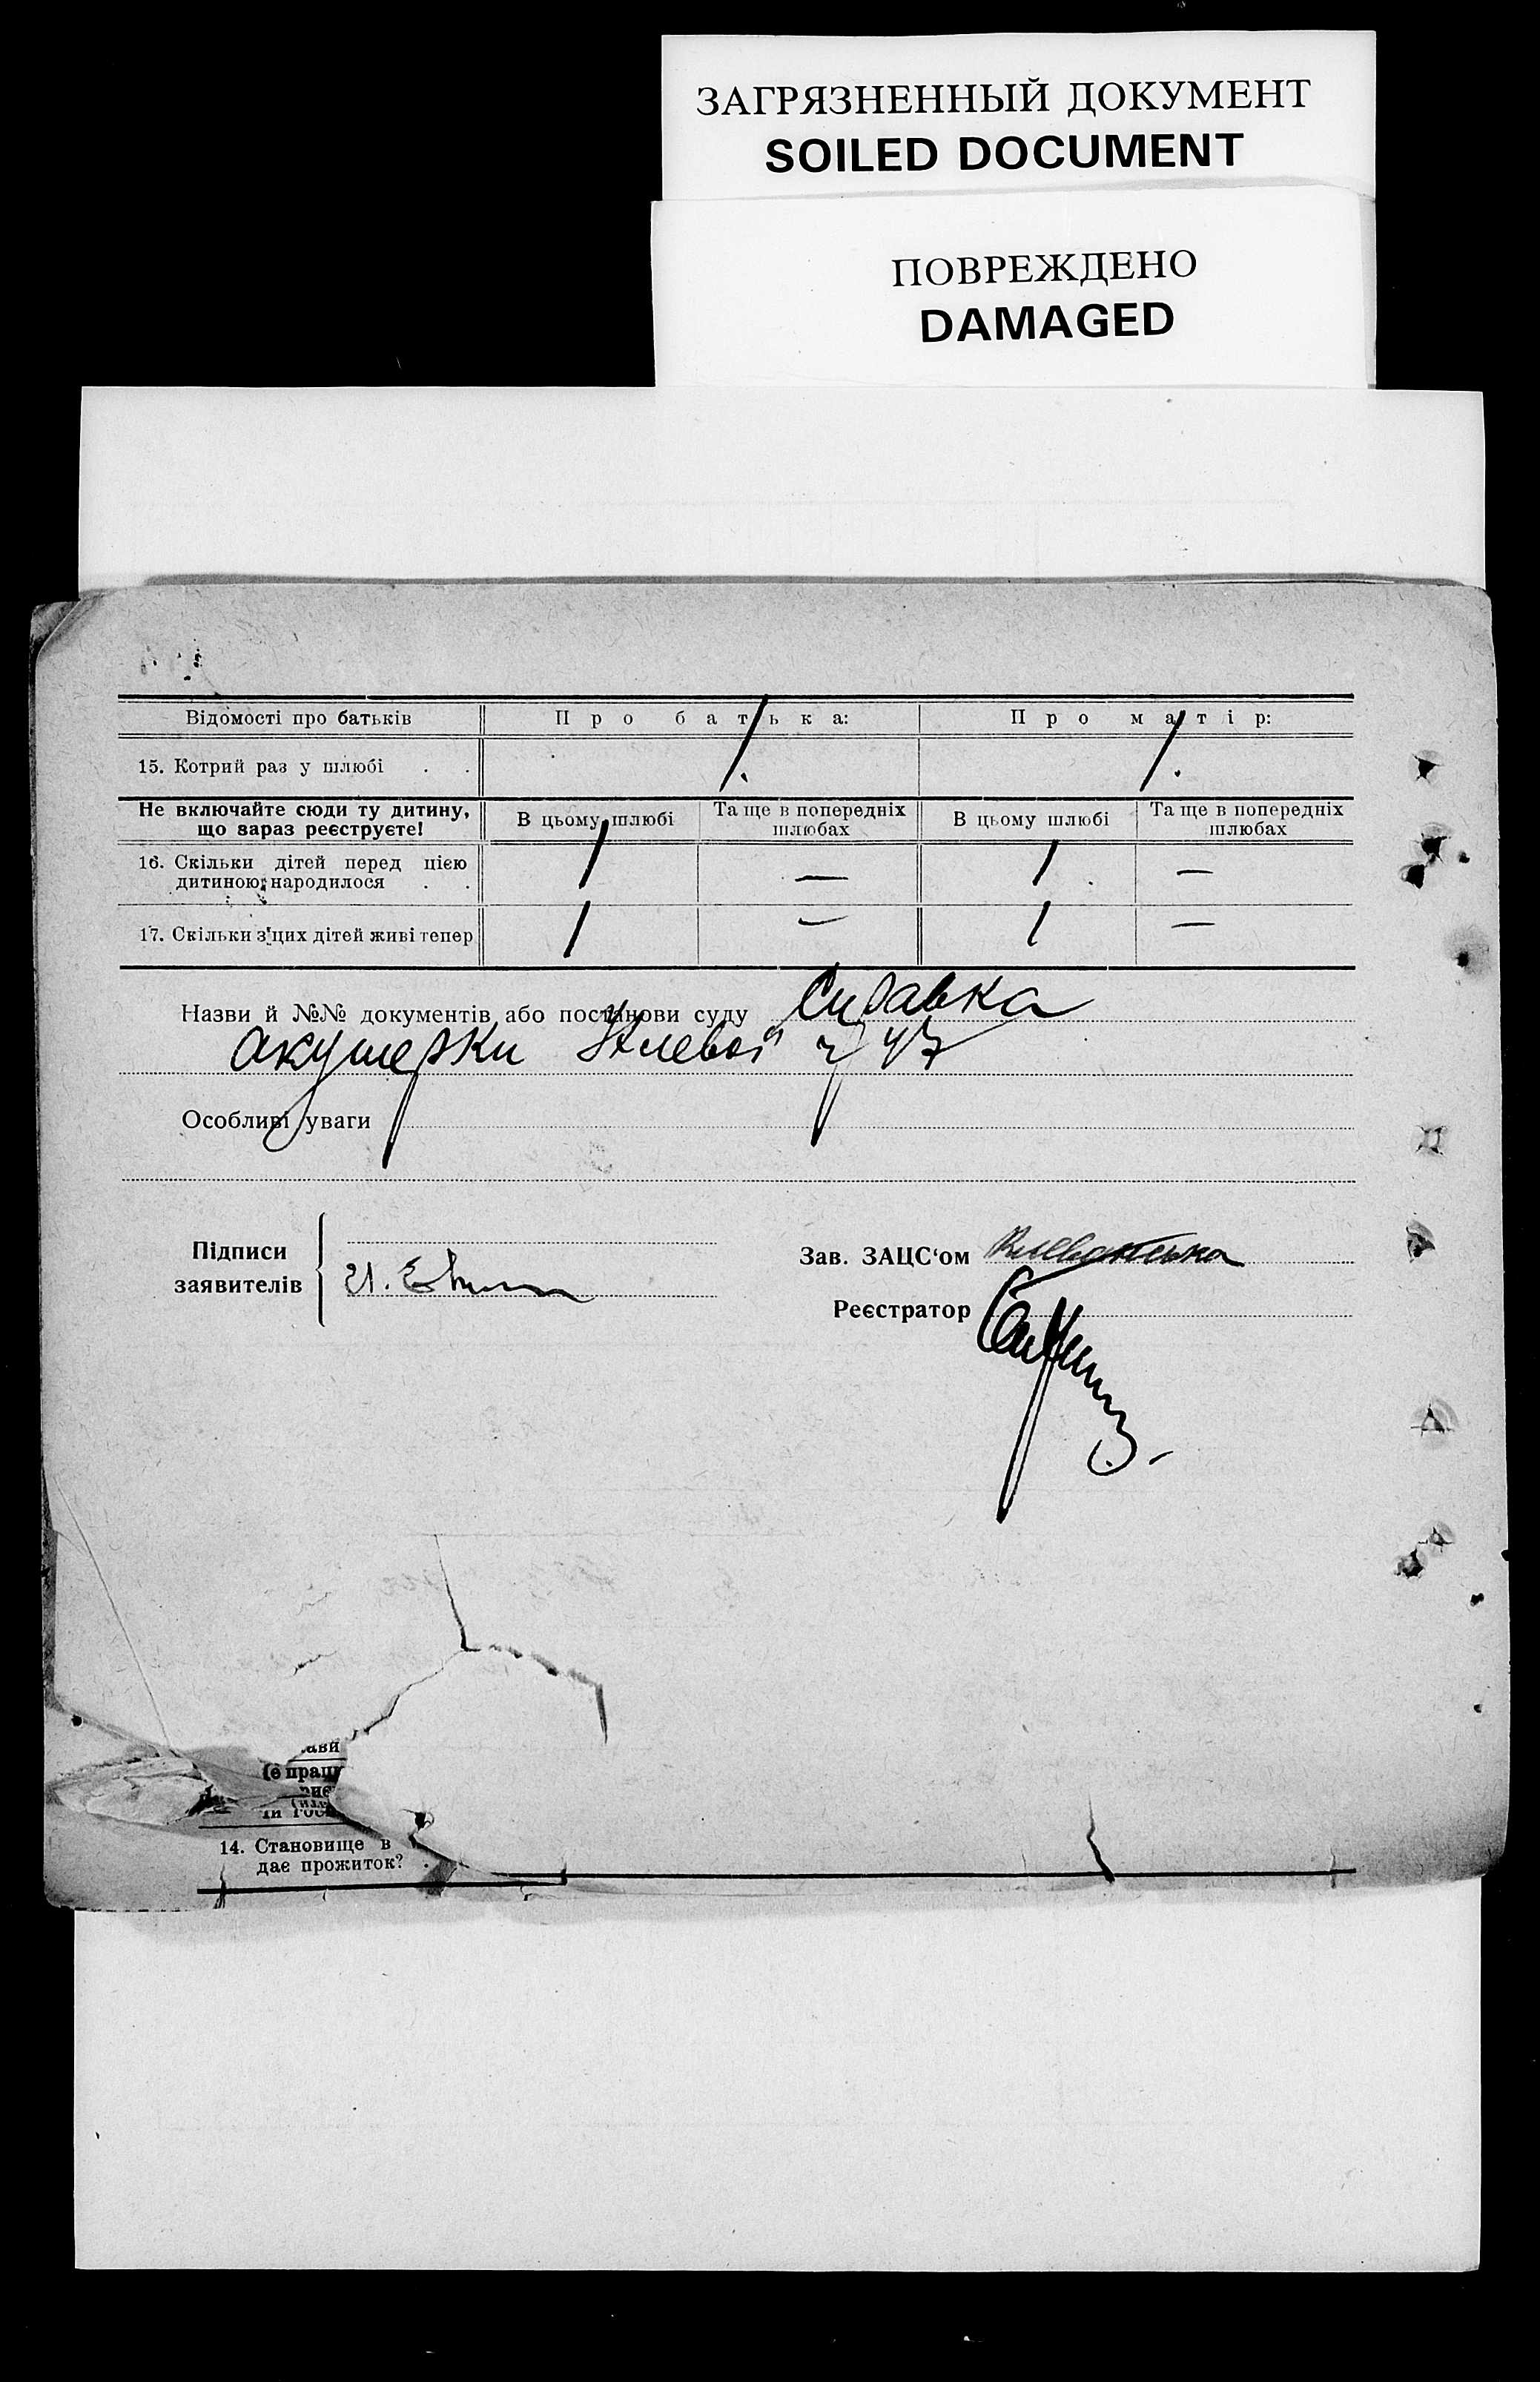 ЗАГРЯЗНЕННЫЙ ДОКУМЕНТ
SOILED DOCUMENT
ПОВРЕЖДЕНО
DAMAGED
Відомості про батьків Про батька: Про матір:
15. Котрий раз у шлюбі . . 1. 1.
Не включайте сюди ту дитину, що зараз реєструєте! В цьому шлюбі Та ще в попередніх шлюбах В цьому шлюбі Та ще в попередніх шлюбах
16. Скільки дітей перед цією
дитиною народилося . . 1 — 1 —
17. Скільки з цих дітей живі тепер 1 — 1 —
Назви й №№ документів або постанови суду Справка
акушерки 47
Особливі уваги
Підписи
заявителів
Зав. ЗАЦС‘ом
Реєстратор
14. Становище в
дає прожиток? .